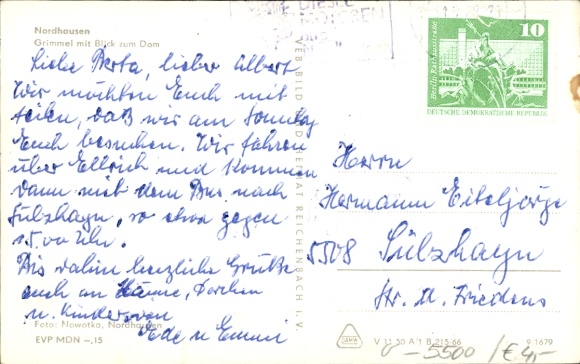 Nordhausen
Grimmel mit Blick zum Dom
Liebe Berta, lieber Albert
Wir möchten Euch mit
teilen, daß wir am Sonntag
Euch besuchen. Wir fahren
über Ellrich und kommen
dann mit dem Bus nach
Sülzhayn, so etwa gegen
15.00 Uhr.
Bis dahin herzliche Grüße
auch an Hanne, Dorchen
u. Kinder von
Ede u Emmi
Foto: Nowotka, Nordhausen
EVP MDN -,15
VEB BILD UND HEIMAT REICHENBACH I. V.
10
Berlin, Rathausstrasse
DEUTSCHE DEMOKRATISCHE REPUBLIK
Herrn
Hermann Eiteljörge
5508 Sülzhayn
Str. d. Friedens
V 11 50 A 1 B 215/66 9 1679
0-5500 /€4,-